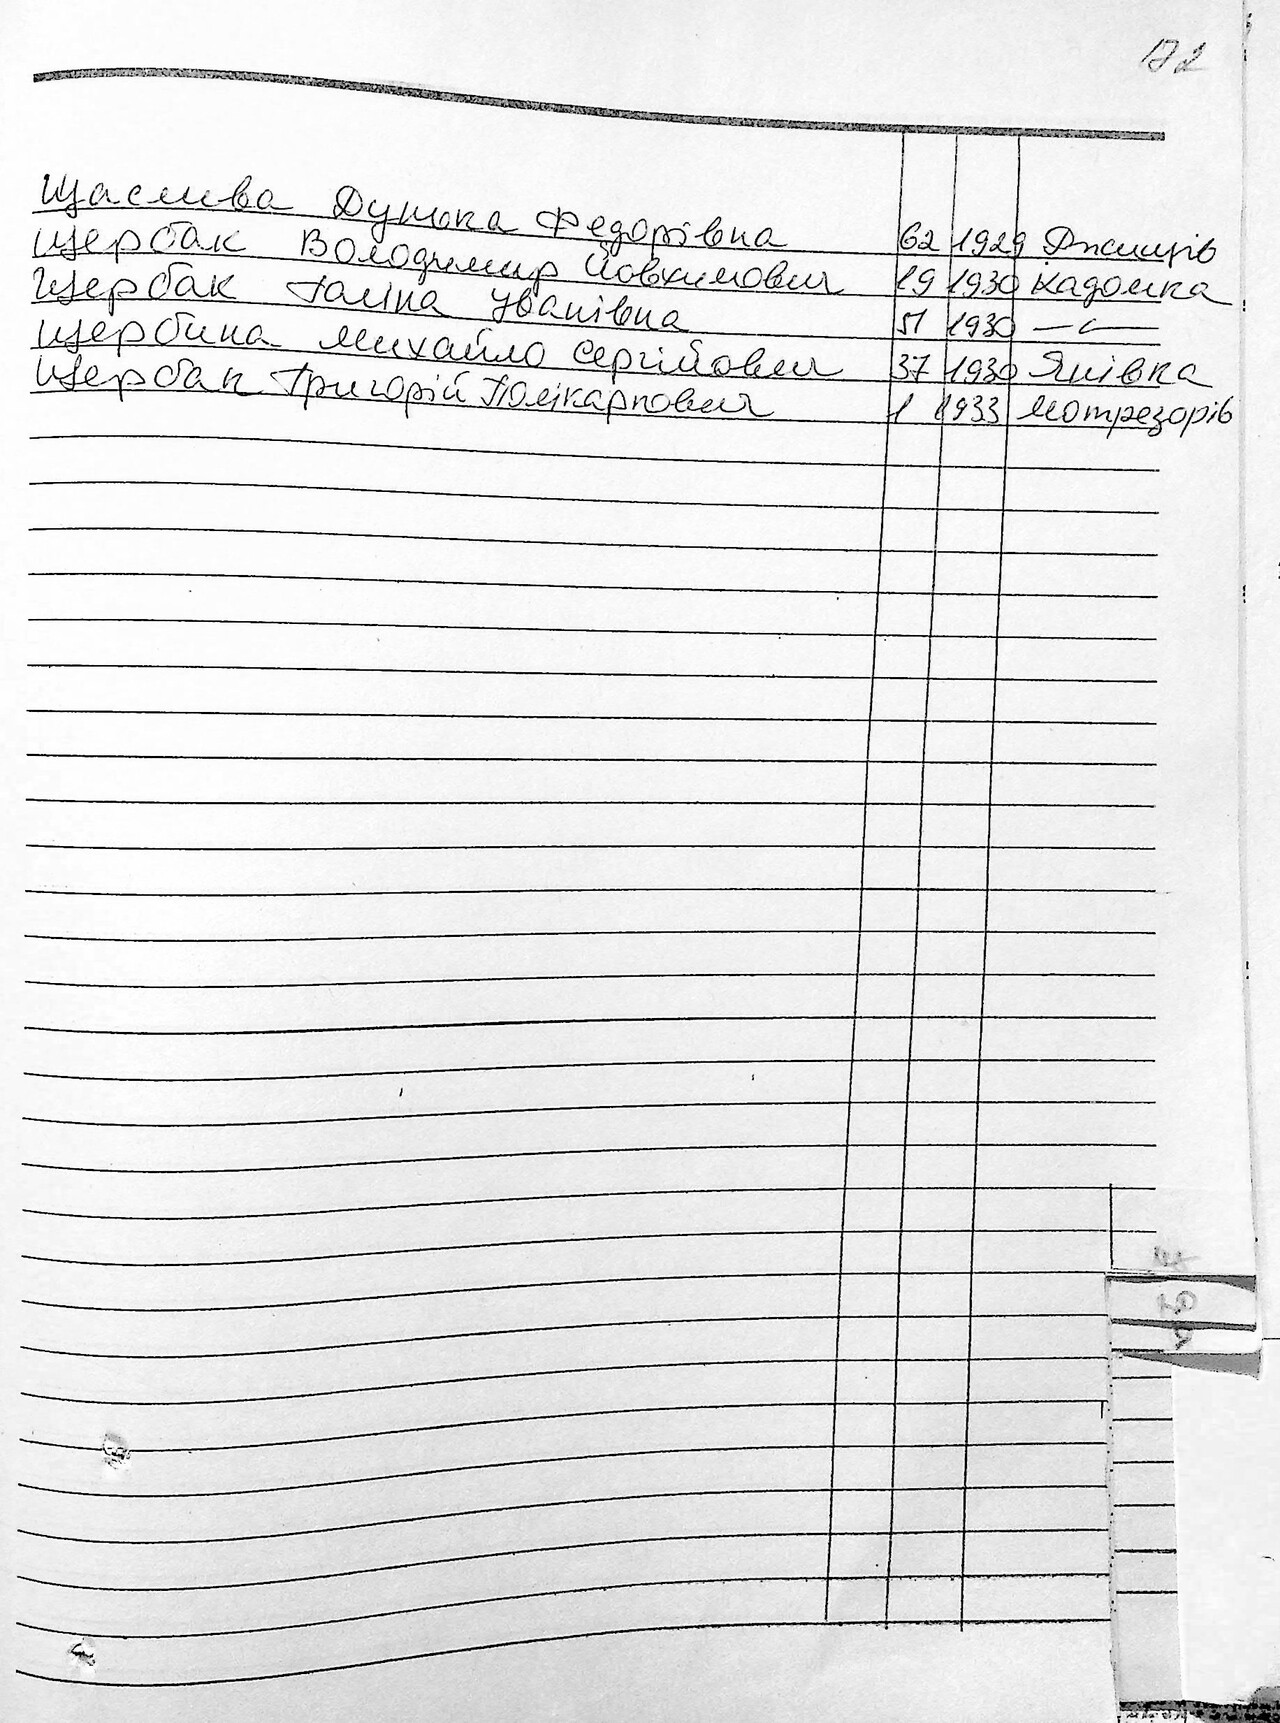 172
Щаслива Дунька Федорівна 62 1929
Щербак Володимир Йовхимович 19 1930 Кадомка
Щербак Галіна Іванівна 51 1930 —〃—
Щербина Михайло Сергійович 37 1930 Янівка
Щербак Григорій Полікарпович 1 1933